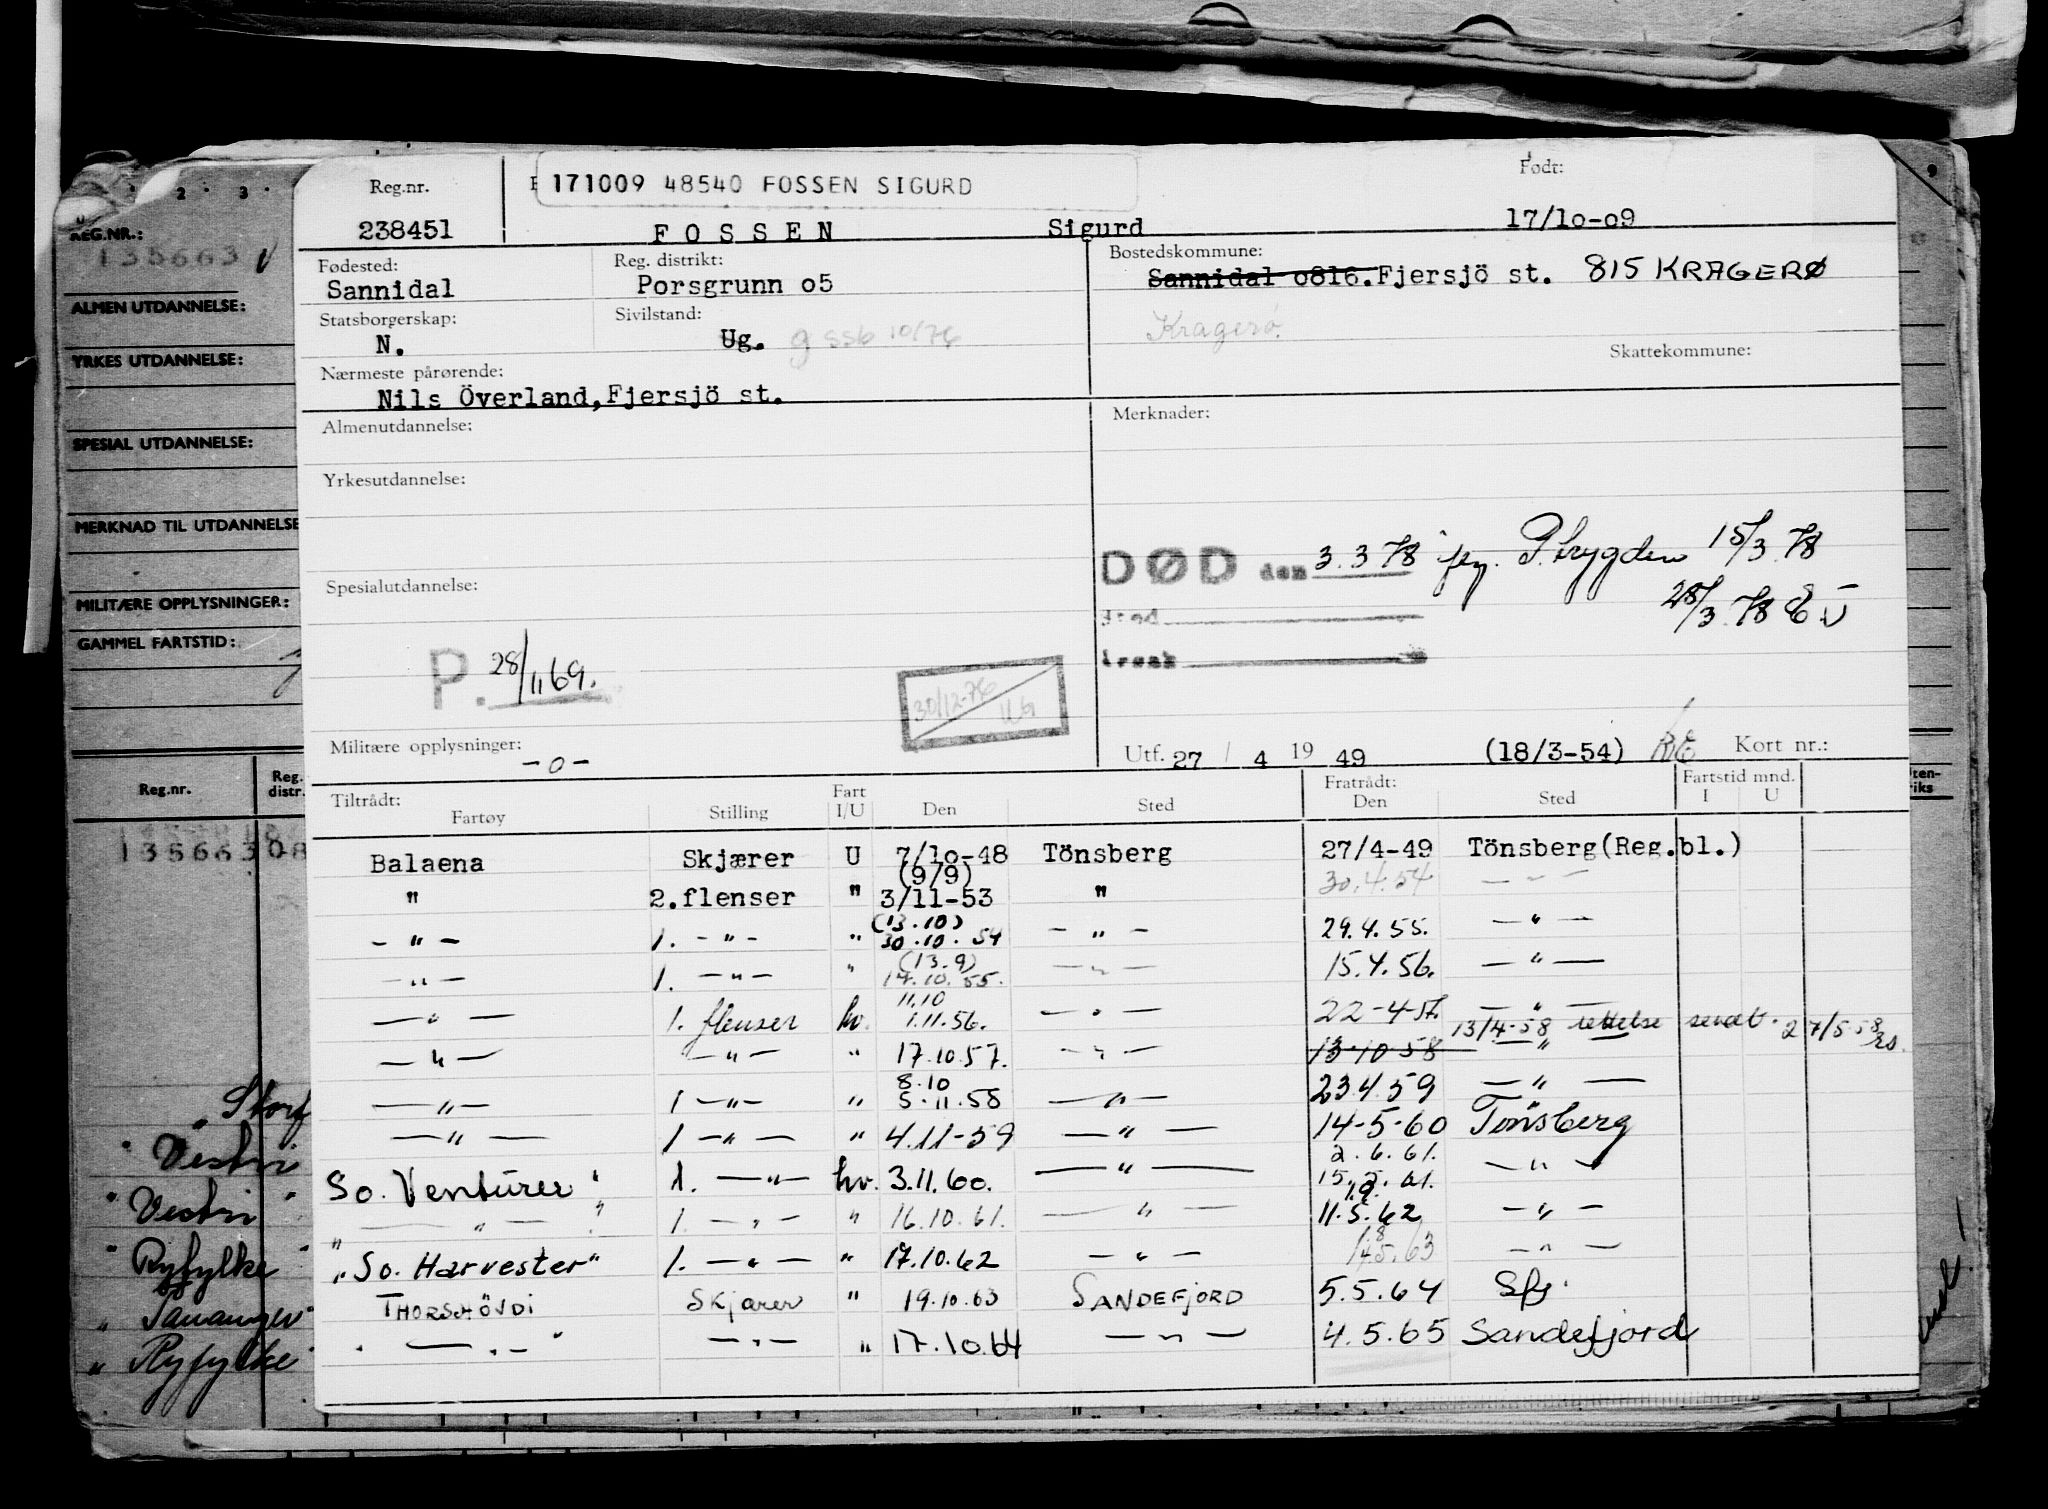 171009 48540 FOSSEN SIGURD
Reg.nr. Født:
238451 FOSSEN Sigurd 17/1o-o9
Fødested: Reg. distrikt: Bostedskommune:
Sannidal Porsgrunn o5 Sannidal o816. Fjersjö st. 815 KRAGERØ
Statsborgerskap: Sivilstand: Kragerø.
N. Ug. g ssb 10/76
Skattekommune:
Nærmeste pårørende:
Nils Överland, Fjersjö st.
Almenutdannelse: Merknader:
Yrkesutdannelse:
DØD den 3.3.78 P.trygden 15/3.78
Spesialutdannelse: 28/3.78
P. 28/11 69.
30/12-76
Militære opplysninger: -o- Utf. 27 / 4 19 49 (18/3-54) Kort nr.:
Tiltrådt: Fart Fratrådt: Fartstid mnd.
Fartøy Stilling I/U Den Sted Den Sted I U
Balaena Skjærer U 7/1o-48 Tönsberg 27/4-49 Tönsberg(Reg.bl.)
(9/9)
" 2.flenser " 3/11-53 " 30.4.54 - " -
(13.10)
- " - 1. - " - " 30.10.54 - " - 29.4.55. - " -
(13.9)
- " - 1. - " - " 14.10.55. - " - 15.4.56. - " -
11.10
- " - 1. flenser hv. 1.11.56. - " - 22-4-57. - " -
13/4-58 rettelse sendt. 27/5 58
- " - - " - " 17.10.57. - " - 13.10.58 - " -
8.10
- " - 1 - " - " 5.11.58 - " - 23.4.59 - " -
- " - 1 - " - " 4.11-59 - " - 14-5-60 Tønsberg
2.6.61.
So. Venturer " 1. - " - hv. 3.11.60. - " - 15.5.61. - " -
" - " - " 1. - " - " 16.10.61. - " - 11.5.62 - " -
"So. Harvester" 1. - " - " 17.10.62 - " - 14.5.63 - " -
THORSHÖVDI Skjærer " 19.10.63 SANDEFJORD 5.5.64 Sfj.
" - " - " - " - " 17.10.64 - " - 4.5.65 Sandefjord
REG.NR.:
135663
ALMEN UTDANNELSE:
YRKES UTDANNELSE:
SPESIAL UTDANNELSE:
MERKNAD TIL UTDANNELSE
MILITÆRE OPPLYSNINGER:
GAMMEL FARTSTID:
Reg.nr. Reg. distr.
135663 08
Vestri
" Vestri "
" Ryfylke "
" Ryfylke "